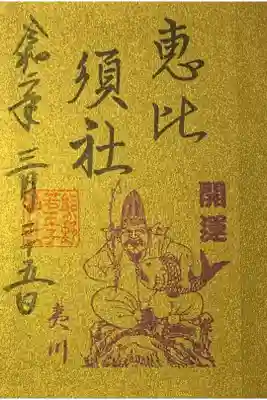 開運
恵比
須社
令和二年三月二十五日
夷川